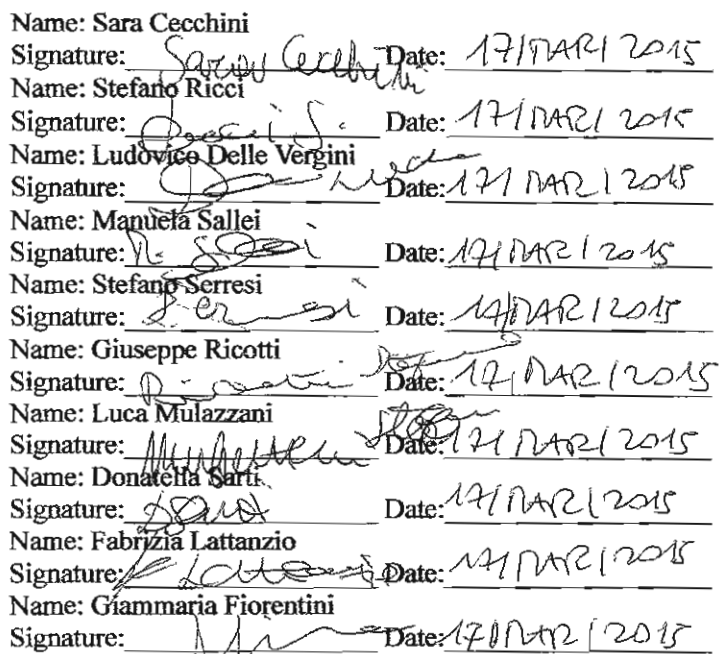 Name: Sara Cecchini
Signature: Sara Cecchini Date: 17/MAR/2015
Name: Stefano Ricci
Signature: Date: 17/MAR/2015
Name: Ludovico Delle Vergini
Signature: Date: 17/MAR/2015
Name: Manuela Sallei
Signature: Date: 17/MAR/2015
Name: Stefano Serresi
Signature: Date: 17/MAR/2015
Name: Giuseppe Ricotti
Signature: Date: 17/MAR/2015
Name: Luca Mulazzani
Signature: Date: 17/MAR/2015
Name: Donatella Sarti
Signature: Date: 17/MAR/2015
Name: Fabrizia Lattanzio
Signature: Date: 17/MAR/2015
Name: Giammaria Fiorentini
Signature: Date: 17/MAR/2015